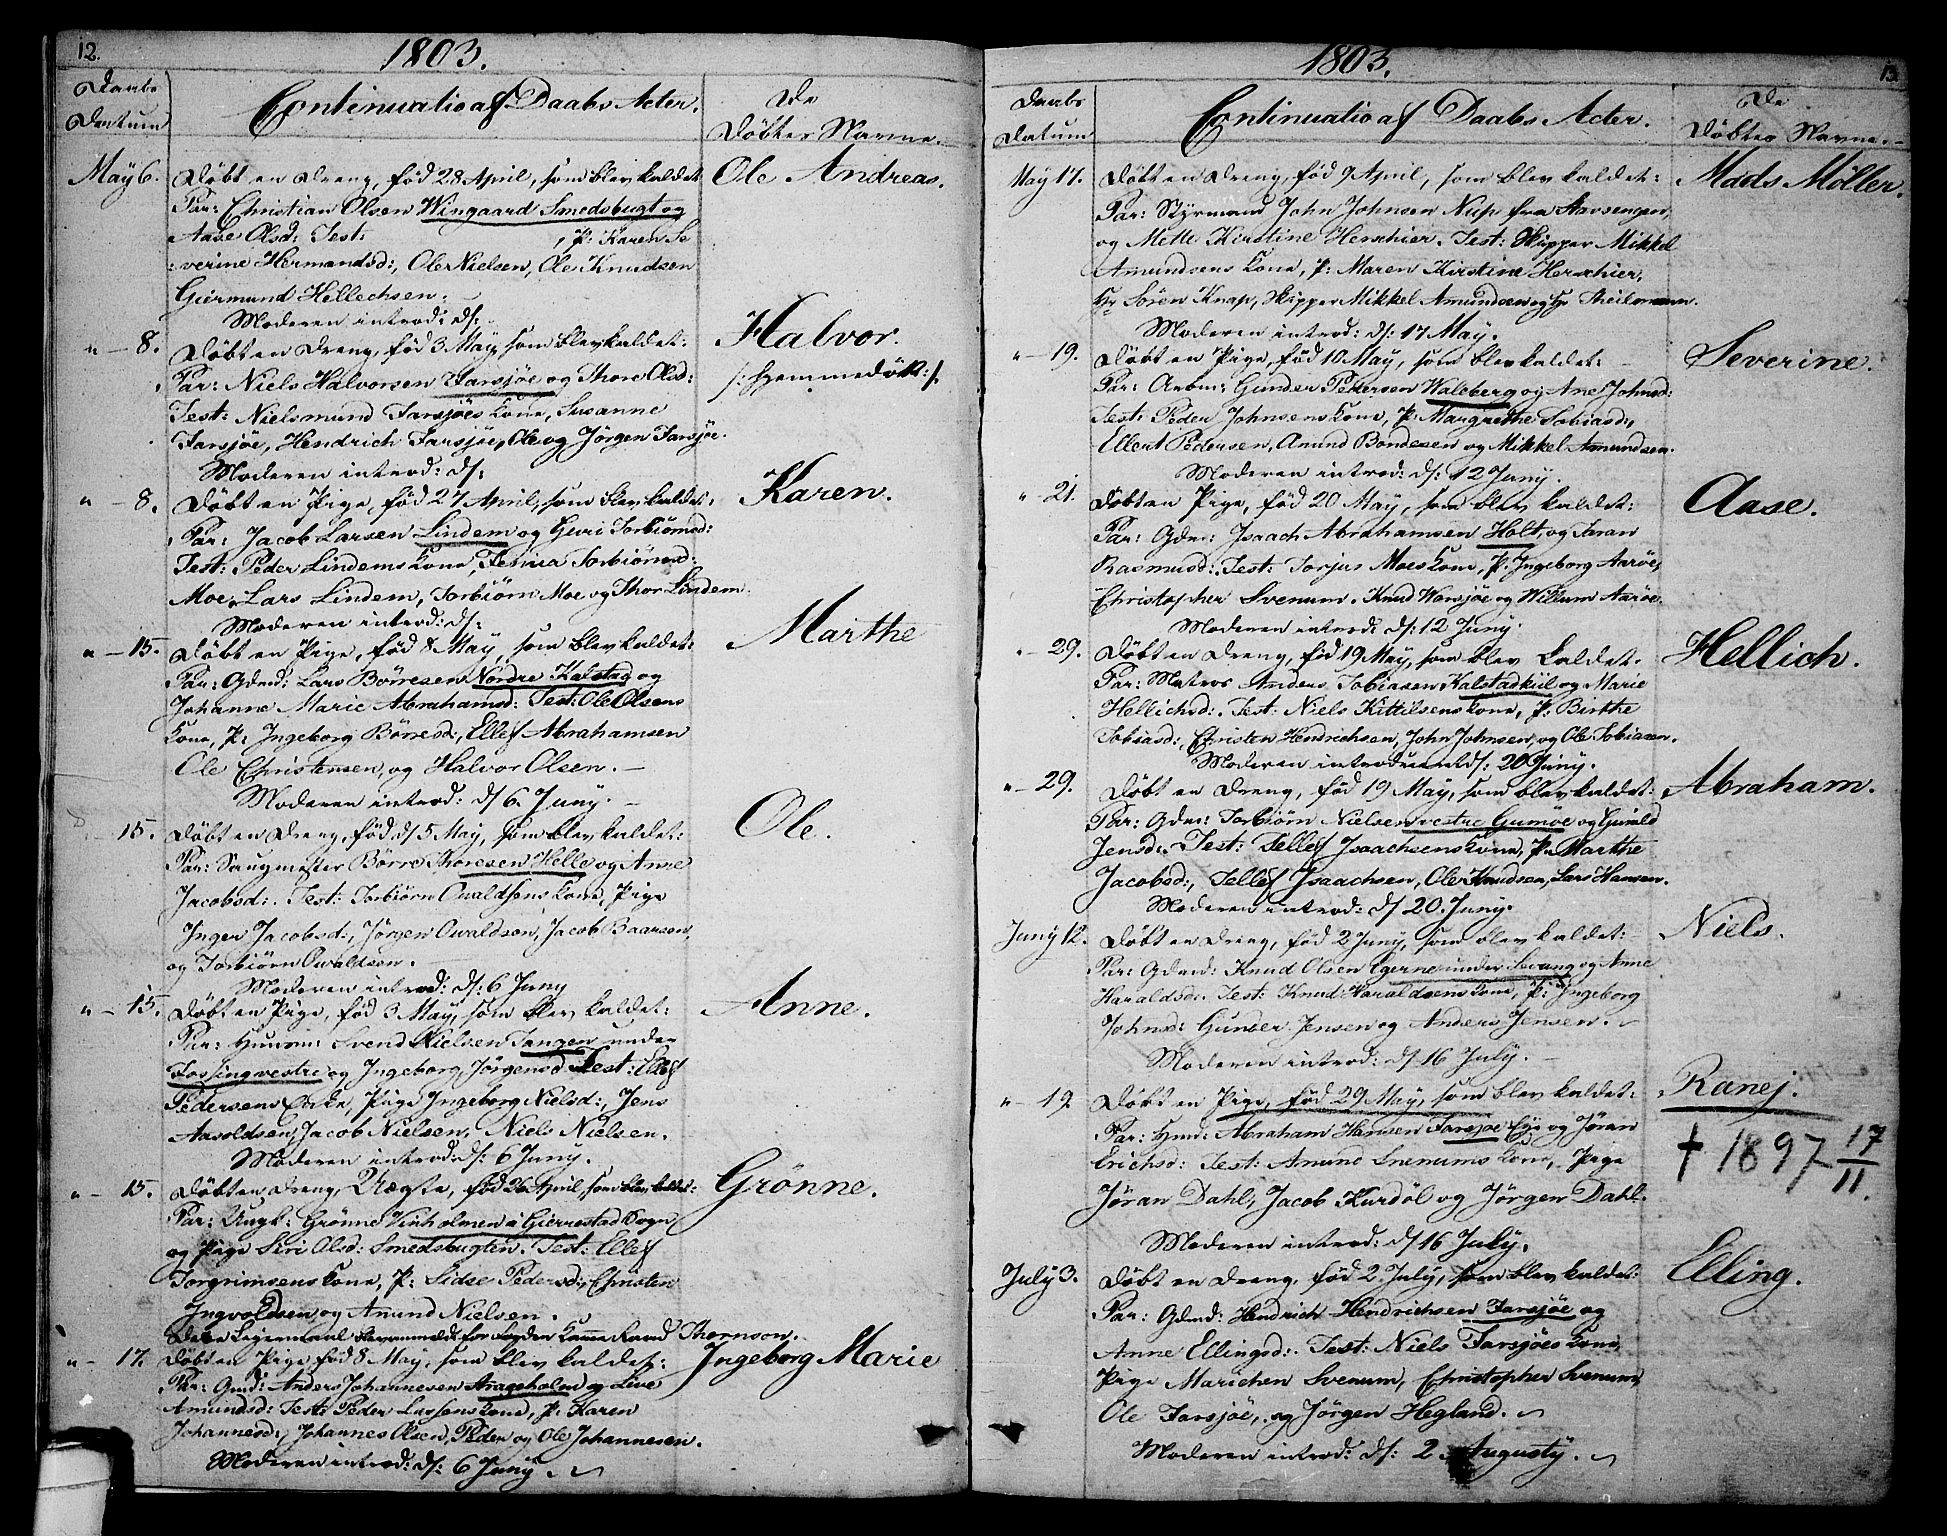 12.
1803.
Daabs
Datum
Continuatio af Daabs Acter.
De
Döbtes Navne.
May 6.
Döbt en Dreng, fød 28 April, som blev kaldet
Ole Andreas.
Par: Christian Olsen Wingaard Smedsbugt og
Aase Olsd: Test: , P: Karen Se
verine Hermandsd:, Ole Nielsen, Ole Knudsen
Giermund Hellechsen.
Moderen introd: d/:
" – 8.
Döbt en Dreng, fød 3 May, som blev kaldet:
Halvor.
Par: Niels Halvorsen Farsjøe og Thore Olsd:
/: hjemmedöbt :/.
Test: Nielsmund Farsjøes Kone, Susanne
Farsjøe, Hendrich Farsjøe, Ole og Jörgen Farsjøe.
Moderen introd: d/:
" – 8.
Döbt en Pige, fød 27 April, som blev kaldet:
Karen.
Par: Jacob Larsen Lindem og Guri Torbiörnsd:
Test: Peder Lindems Kone, Torbiörnsd:
Moe, Lars Lindem, Torbiörn Moe og Thor Lindem.
Moderen introd: d/:
" – 15.
Döbt en Pige, fød 8 May, som blev kaldet:
Marthe
Par: Gdmd: Lars Börresen Nordre Kalstad og
Johanne Marie Abrahamsd: Test: Ole Olsens
Kone, P: Ingeborg Börresd:, Ellef Abrahamsen
Ole Christensen, og Halvor Olsen. –
Moderen introd: d/ 6. Juny. –
15.
Döbt en Dreng, fød d/ 5 May, som blev kaldet:
Ole.
Par: Saugmester Börre Thoresen Kelle og Anne
Jacobsd:. Test: Torbiörn Owaldsens Kone, Pige
Inger Jacobsd:, Jörgen Owaldsen, Jacob Baarsen,
og Torbiörn Owaldsen. –
Moderen introd: d/: 6 Juny
" – 15.
Döbt en Pige, fød 3 May, som blev kaldet:
Anne.
Par: Huusm: Svend Nielsen Tangen under
Fossing vestre og Ingeborg Jörgensd Test: Ellef
Pedersens Enke, Pige Ingeborg Nielsd:, Jens
Aasoldsen, Jacob Nielsen, Niels Nielsen.
Moderen introd: d/: 6 Juny.
" – 15.
Döbt en Dreng, Uægte, fød 26 April som blev kaldet:
Grönne.
Par: Ungk: Grönne Vinholmen i Gierrestad Sogn
og Pige Siri Olsd: Smedsbugten. Test: Ellef
Torgrimsens Kone, P: Sidse Pedersd:, Christen
Ingvoldsen og Amund Nielsen.
Dette Leyermaal for Fogden Thornson.
" – 17.
Döbt en Pige fød 8 May, som blev kaldet:
Ingeborg Marie
Par: Gmd: Anders Johannesen Aragsholm og Live
Amundsd: Test: Peder Larsens Kone, P: Karen
Johannesd:, Johannes Olsen, Peder og Ole Johannesen.
Moderen introd: d/: 6 Juny.
1803.
13.
Daabs
Datum
Continuatio af Daabs Acter.
De
Döbtes Navne. –
May 17.
Döbt en Dreng, fød 9 April, som blev kaldet:
Mads Möller.
Par: Styrmand John Johnsen Nup fra Stavsengen,
og Mette Kirstine Herschier. Test: Skipper Mikkel
Amundsens Kone, P: Maren Kirstine Herschier,
Hr Sören Knap, Skipper Mikkel Amundsen og Hr Theilmann.
Moderen introd: d/: 17 May.
" – 19.
Döbt en Pige, fød 10 May, som blev kaldet:
Severine.
Par: Arbm: Gunder Pedersen Waleberg og Ane Johnsd:
Test: Peder Johnsens Kone, P: Margrethe Tobiasd:,
Ellert Pedersen, Amund Bondesen og Mikkel Amundsen.
Moderen introd: d/: 12 Juny.
" – 21.
Döbt en Pige, fød 20 May, som blev kaldet:
Aase.
Par: Gdm: Isaach Abrahamsen Holt, og Taran
Rasmusd:. Test: Torjus Moes Kone, P: Ingeborg Aaröe,
Christopher Svenum, Knud Warsjøe og Willum Aaröe.
Moderen introd: d/: 12 Juny.
" – 29.
Döbt en Dreng, fød 19 May, som blev kaldet.
Hellich.
Par: Matros Anders Tobiasen Kalstadkiil og Marie
Hellichsd:. Test: Niels Kittilsens Kone, P: Birthe
Tobiasd:, Christen Hendrichsen, John Johnsen, og Ole Tobiasen.
Moderen introduceret d/: 20 Juny.
" – 29.
Döbt en Dreng, fød 19 May, som blev kaldet:
Abraham.
Par: Gdm: Torbiörn Nielsen vestre Gumöe og Gunild
Jensd:. Test: Tellef Isaachsens Kone, P: Marthe
Jacobsd:, Tellef Isaachsen, Ole Knudsen, Lars Hansen.
Moderen introd: d/ 20. Juny.
Juny 12.
Döbt en Dreng, fød 2 Juny, som blev kaldet:
Niels.
Par: Gdmd: Knud Olsen Egerne under Levang og Anne
Haraldsd:. Test: Knud Haraldsens Kone, P: Ingeborg
Johnsd: Gunder Jensen og Anders Jensen. –
Moderen introd: d/ 16 July. –
" – 19
Döbt en Pige, fød 29 May, som blev kaldet:
Ranej.
Par: Hmd: Abraham Hansen Farsjøe Eye og Jöran
Erichsd: Test: Amund Snenums Kone, Pige
† 1897 17/11.
Jöran Dahl, Jacob Kurdöl og Jörgen Dahl.
Moderen introd: d/ 16 July.
July 3.
Döbt en Dreng, fød 2. July, som blev kaldet:
Elling.
Par: Gdmd: Hendrich Hendrichsen Farsjøe og
Anne Ellingsd:. Test: Niels Farsjøes Kone,
Pige Marichen Svenum, Christopher Svenum,
Ole Farsjøe, og Jörgen Hegland.
Moderen introd: d/: 2 Augusty.